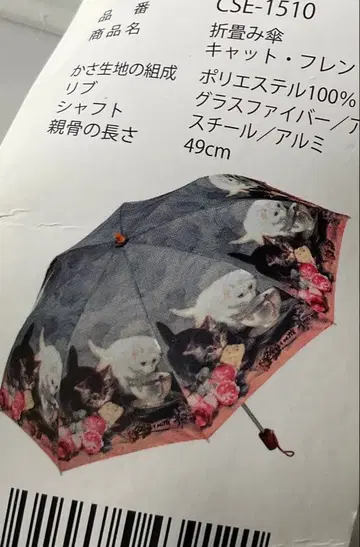 品 番 CSE-1510
商品名 折畳み傘
キャット・フレン
かさ生地の組成 ポリエステル100%
リブ グラスファイバー/ア
シャフト スチール/アルミ
親骨の長さ 49cm